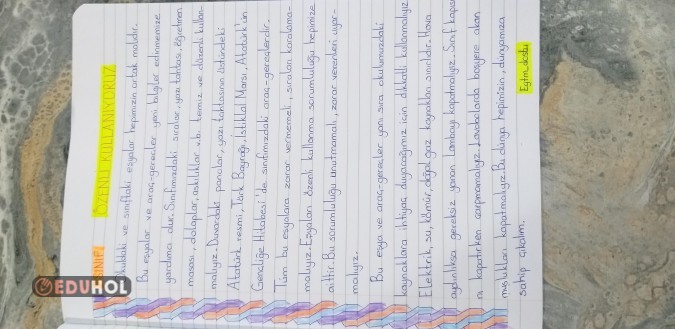 SINIF
ÖZENLİ KULLANIYORUZ
Okuldaki ve sınıftaki eşyalar hepimizin ortak malıdır.
Bu eşyalar ve araç-gereçler yeni bilgiler edinmemize
yardımcı olur. Sınıfımızdaki sıralar, yazı tahtası, öğretmen
masası, dolaplar, askılıklar v.b. temiz ve düzenli kullan-
malıyız. Duvardaki panolar, yazı tahtasının üstündeki
Atatürk resmi, Türk Bayrağı, İstiklal Marşı, Atatürk'ün
Gençliğe Hitabesi de sınıfımızdaki araç-gereçlerdir.
Tüm bu eşyalara zarar vermemeli, sıraları karalama-
malıyız. Eşyaları özenli kullanma sorumluluğu hepimize
aittir. Bu sorumluluğu unutmamalı, zarar verenleri uyar-
malıyız.
Bu eşya ve araç-gereçler yanı sıra okulumuzdaki
kaynaklara ihtiyaç duyacağımız için dikkatli kullanmalıyız.
Elektrik, su, kömür, doğal gaz kaynakları sınırlıdır. Hava
aydınlıksa gereksiz yanan lambayı kapatmalıyız. Sınıf kapısı
nı kapatırken çarpmamalıyız. Lavabolarda boşyere akan
muslukları kapatmalıyız. Bu dünya hepimizin, dünyamıza
sahip çıkalım.
Egtm_dostu
EDUHOL